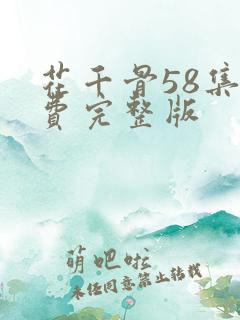 花千骨58集
费完整版
萌吧啦
未经同意禁止转载